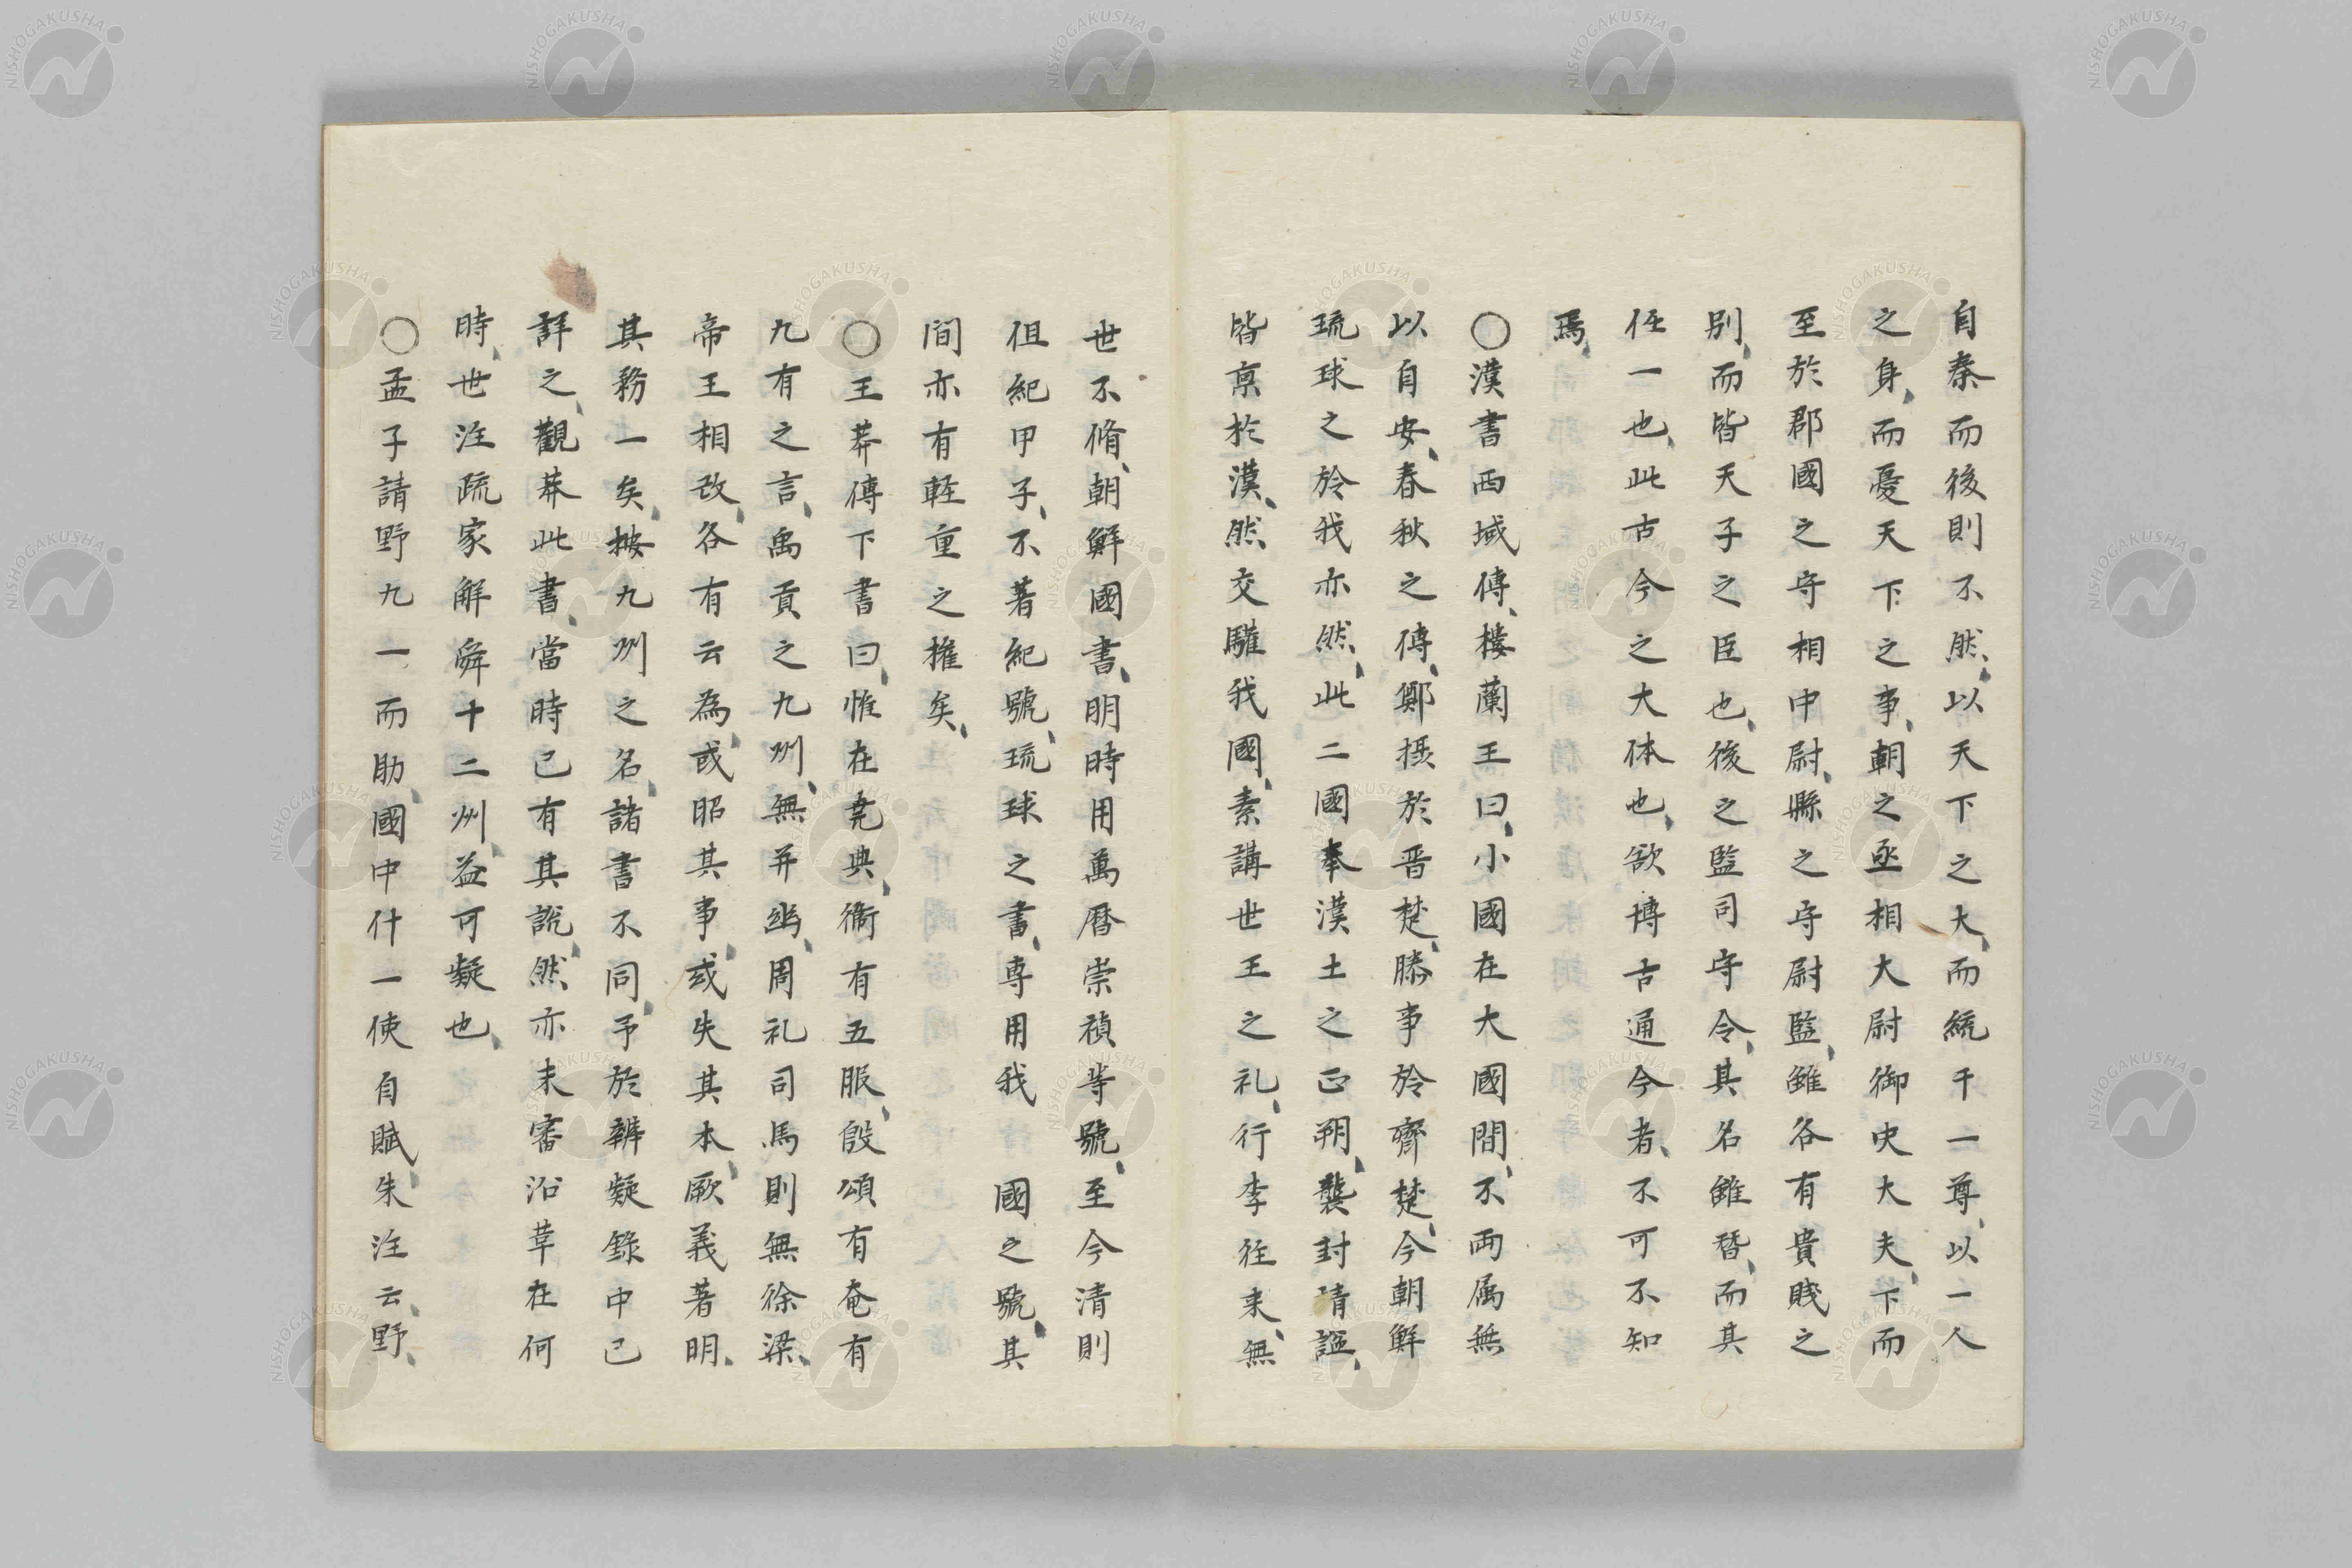 自秦而後則不然、以天下之大、而統于一尊、以一人
之身、而憂天下之事、朝之丞相大尉御史大夫、下而
至於郡國之守相中尉、縣之守尉監、雖各有貴賤之
別、而皆天子之臣也、後之監司守令、其名雖替、而其
任一也、此古今之大体也、欲博古通今者、不可不知
焉、
○漢書西域傳、樓蘭王曰、小國在大國間、不両属無
以自安、春秋之傳、鄭摂於晋楚、滕事於齊楚、今朝鮮
琉球之於我亦然、此二國奉漢土之正朔、襲封請謚、
皆禀於漢、然交驩我國、素講世王之礼、行李往来、無
世不脩、朝鮮國書、明時用萬暦崇禎等號、至今清則
但紀甲子、不著紀號、琉球之書、専用我 國之號、其
間亦有軽重之権矣、
○王莽傳下書曰、惟在堯典、衞有五服、殷頌有奄有
九有之言、禹貢之九州、無并幽、周礼司馬則無徐梁、
帝王相改、各有云為、或昭其事、或失其本、厥義著明、
其務一矣、按九州之名、諸書不同、予於辨疑錄中已
詳之、觀莽此書、當時已有其說、然亦未審沿革在何
時、世注疏家解舜十二州、益可疑也、
○孟子請野九一而助、國中什一使自賦、朱注云、野、
NISHOGAKUSHA